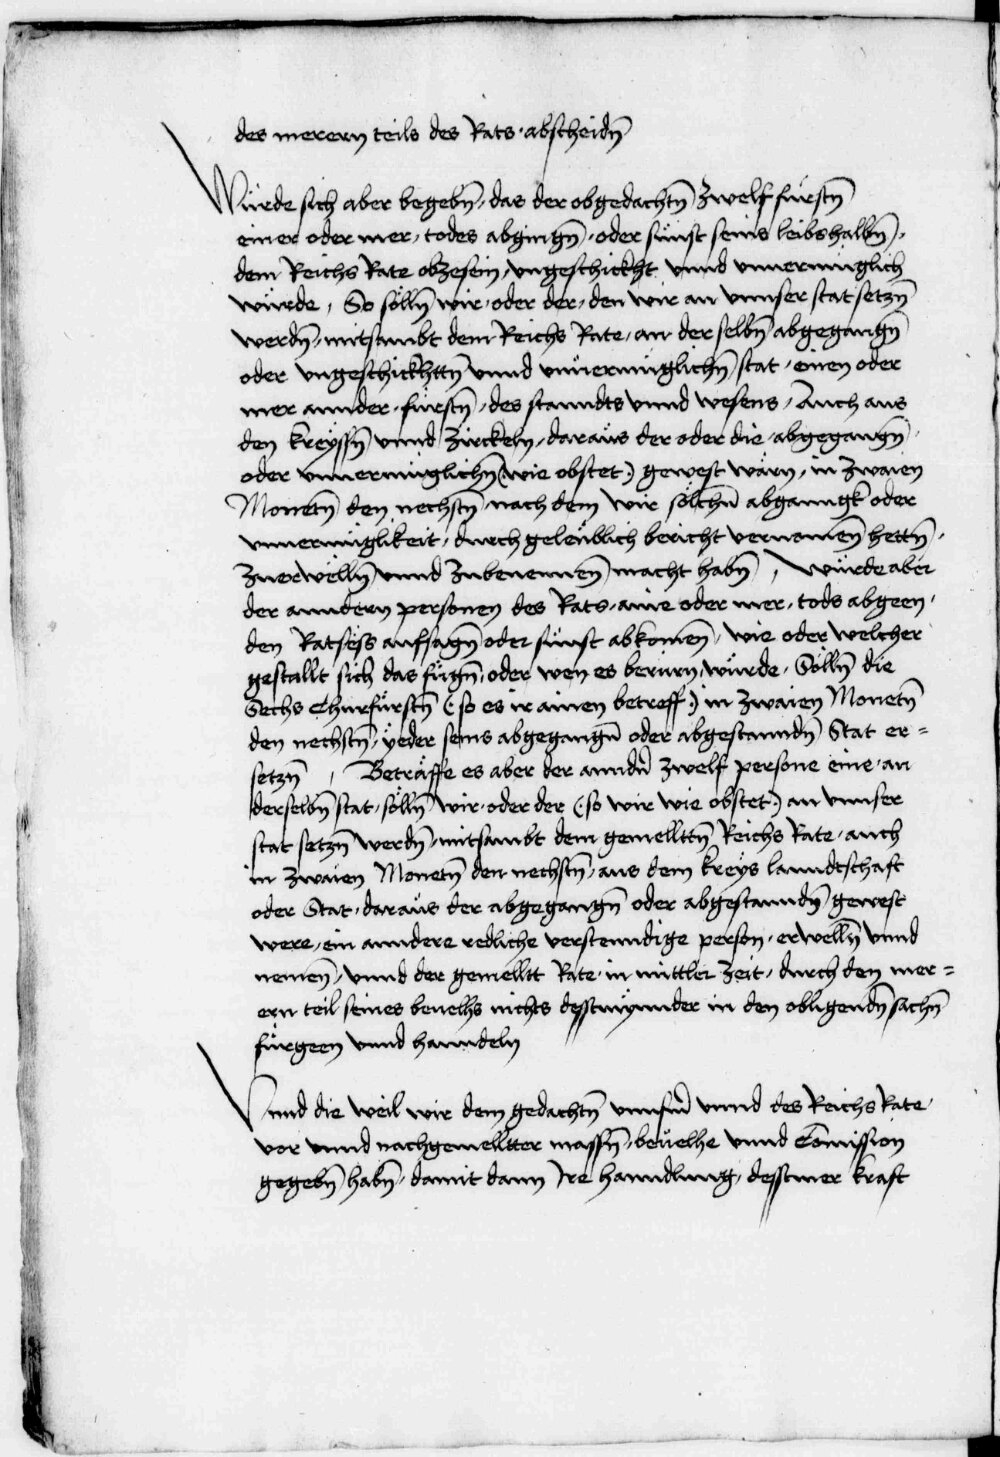 des merern teils des Rats · abscheidn̄
Würde sich aber begebn̄, das der obgedachtn̄ Zwelf fürstn̄
einer oder mer, todes abgingn̄, oder sünst seins leibs halbn̄,
dem Reichs Rate obzesein, ungeschickht vnnd vnuermüglich
würde, So sölln̄ wir, oder der, den wir an vnnser stat setzn̄
werdn̄, mitsambt dem Reichs Rate, an derselbn̄ abgegangn̄
oder vngeschickhttn̄ vnnd vnuermüglichn̄ stat, einen oder
mer annder, fürstn̄, des stanndts vnnd wesens, Auch aus
den kreyssn̄ vnnd Zirckeln, daraus der oder die, abgegangn̄,
oder vnuermüglichn̄ (wie obstet:) gewest wärn, in Zwaien
Monetn̄ den nechstn̄, nach dem wir sölchn̄ abganngk oder
vnuermüglikeit, durch geleüblich bericht vernomen̄ hettn̄,
Zuerwelln̄ vnnd Zubenennen̄ macht habn̄, würde aber
der anndern personen des Rats, aine oder mer, tods abgeen,
den Ratsëss aufsagn̄ oder sünst abkomen̄, wie oder welcher
gestallt sich das fügn̄, oder wen es berürn, würde, Sölln̄ die
Sechs Churfürstn̄ (: so es ir ainen betreff:) in Zwaien Monetn̄
den nechstn̄, yeder seins abgegangn̄ oder abgestanndn̄ Stat er=
setzn̄, Beträffe es aber der anndn̄ Zwelf persone eine, an
derselbn̄ stat, sölln̄ wir, oder der (: so wir wie obstet:) an vnnser
stat setzn̄ werdn̄, mitsambt dem gemellttn̄ Reichs Rate, auch
in Zwaien Monetn̄ den nechstn̄, aus dem kreys lanndtschaft
oder Stat, daraus der abgegangn̄ oder abgestanndn̄ gewest
were, ein anndere redliche verstenndige person, erwelln̄ vnnd
nemen̄, vnnd der gemelltt Rate in mittler Zeit, durch den mer=
ern teil seines beuelhs nichts desstmynnder in den obligendn̄ sachn̄
fürgeen vnnd hanndeln
Vnnd die weil wir dem gedachtn̄ vnnsern̄ vnnd des Reichs Rate
vor vnnd nachgemelltter massn̄, beuelhe vnnd Com̄ission
gegebn̄ habn̄, damit dann Ire hanndlung, desstmer kraft